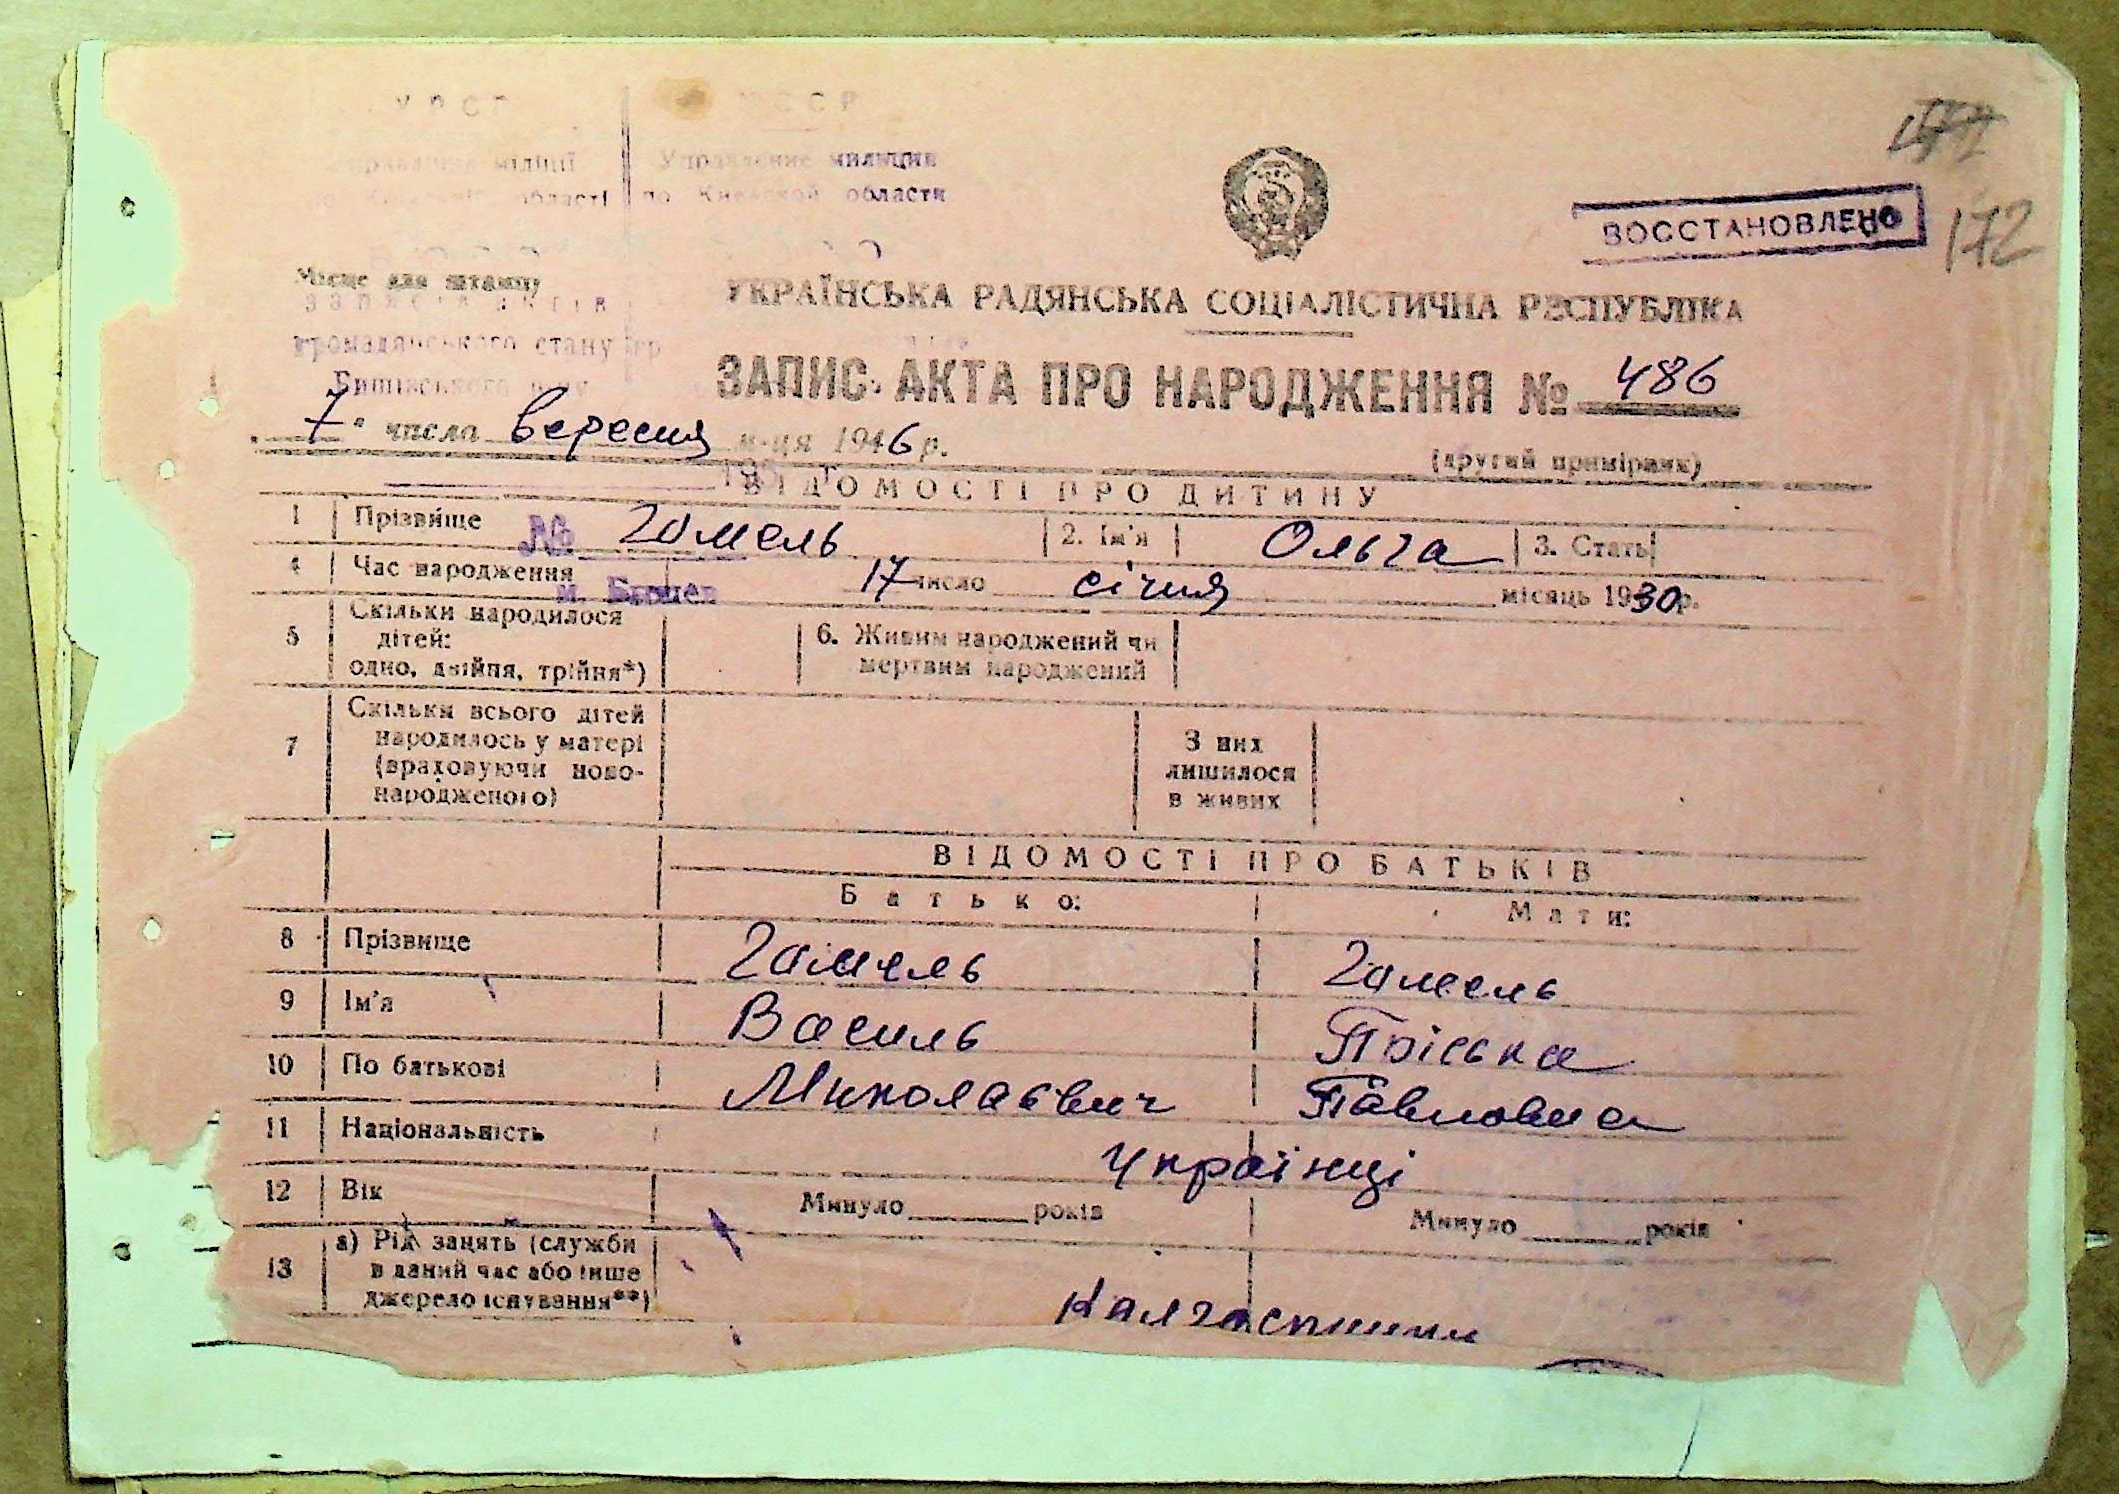 УРСР
УССР
Управління міліції
Управление милиции
по Київській області
по Киевской области
ВОССТАНОВЛЕНО
172
Місце для штампу
УКРАЇНСЬКА РАДЯНСЬКА СОЦІАЛІСТИЧНА РЕСПУБЛІКА
громадянського стану
ЗАПИС АКТА ПРО НАРОДЖЕННЯ № 486
7 " числа вересня м-ця 1946 р.
(другий примірник)
ВІДОМОСТІ ПРО ДИТИНУ
1 Прізвище № Гомель 2. Ім'я Ольга 3. Стать
4 Час народження 17 число січня місяць 1930 р.
5 Скільки народилося дітей: одно, двійня, трійня*)
6. Живим народжений чи мертвим народжений
7 Скільки всього дітей народилось у матері (враховуючи ново-народженого)
З них лишилося в живих
ВІДОМОСТІ ПРО БАТЬКІВ
Батько: Мати:
8 Прізвище Гомель Гомель
9 Ім'я Василь Пріська
10 По батькові Миколаєвич Павловна
11 Національність Українці
12 Вік Минуло ______ років Минуло ______ років
13 а) Рід занять (служби в даний час або інше джерело існування**)
Калгоспники